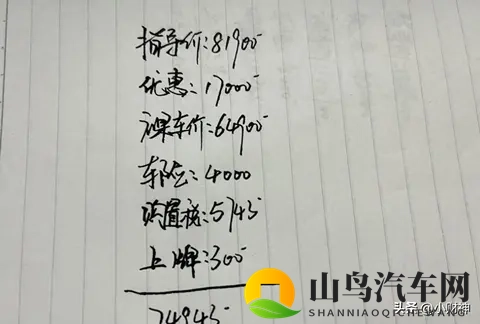 指导价:81900
优惠:17000
裸车价:64900
车险:4000
购置税:5745
上牌:300
74945
山鸟汽车网
SHANNIAOQICHEWANG